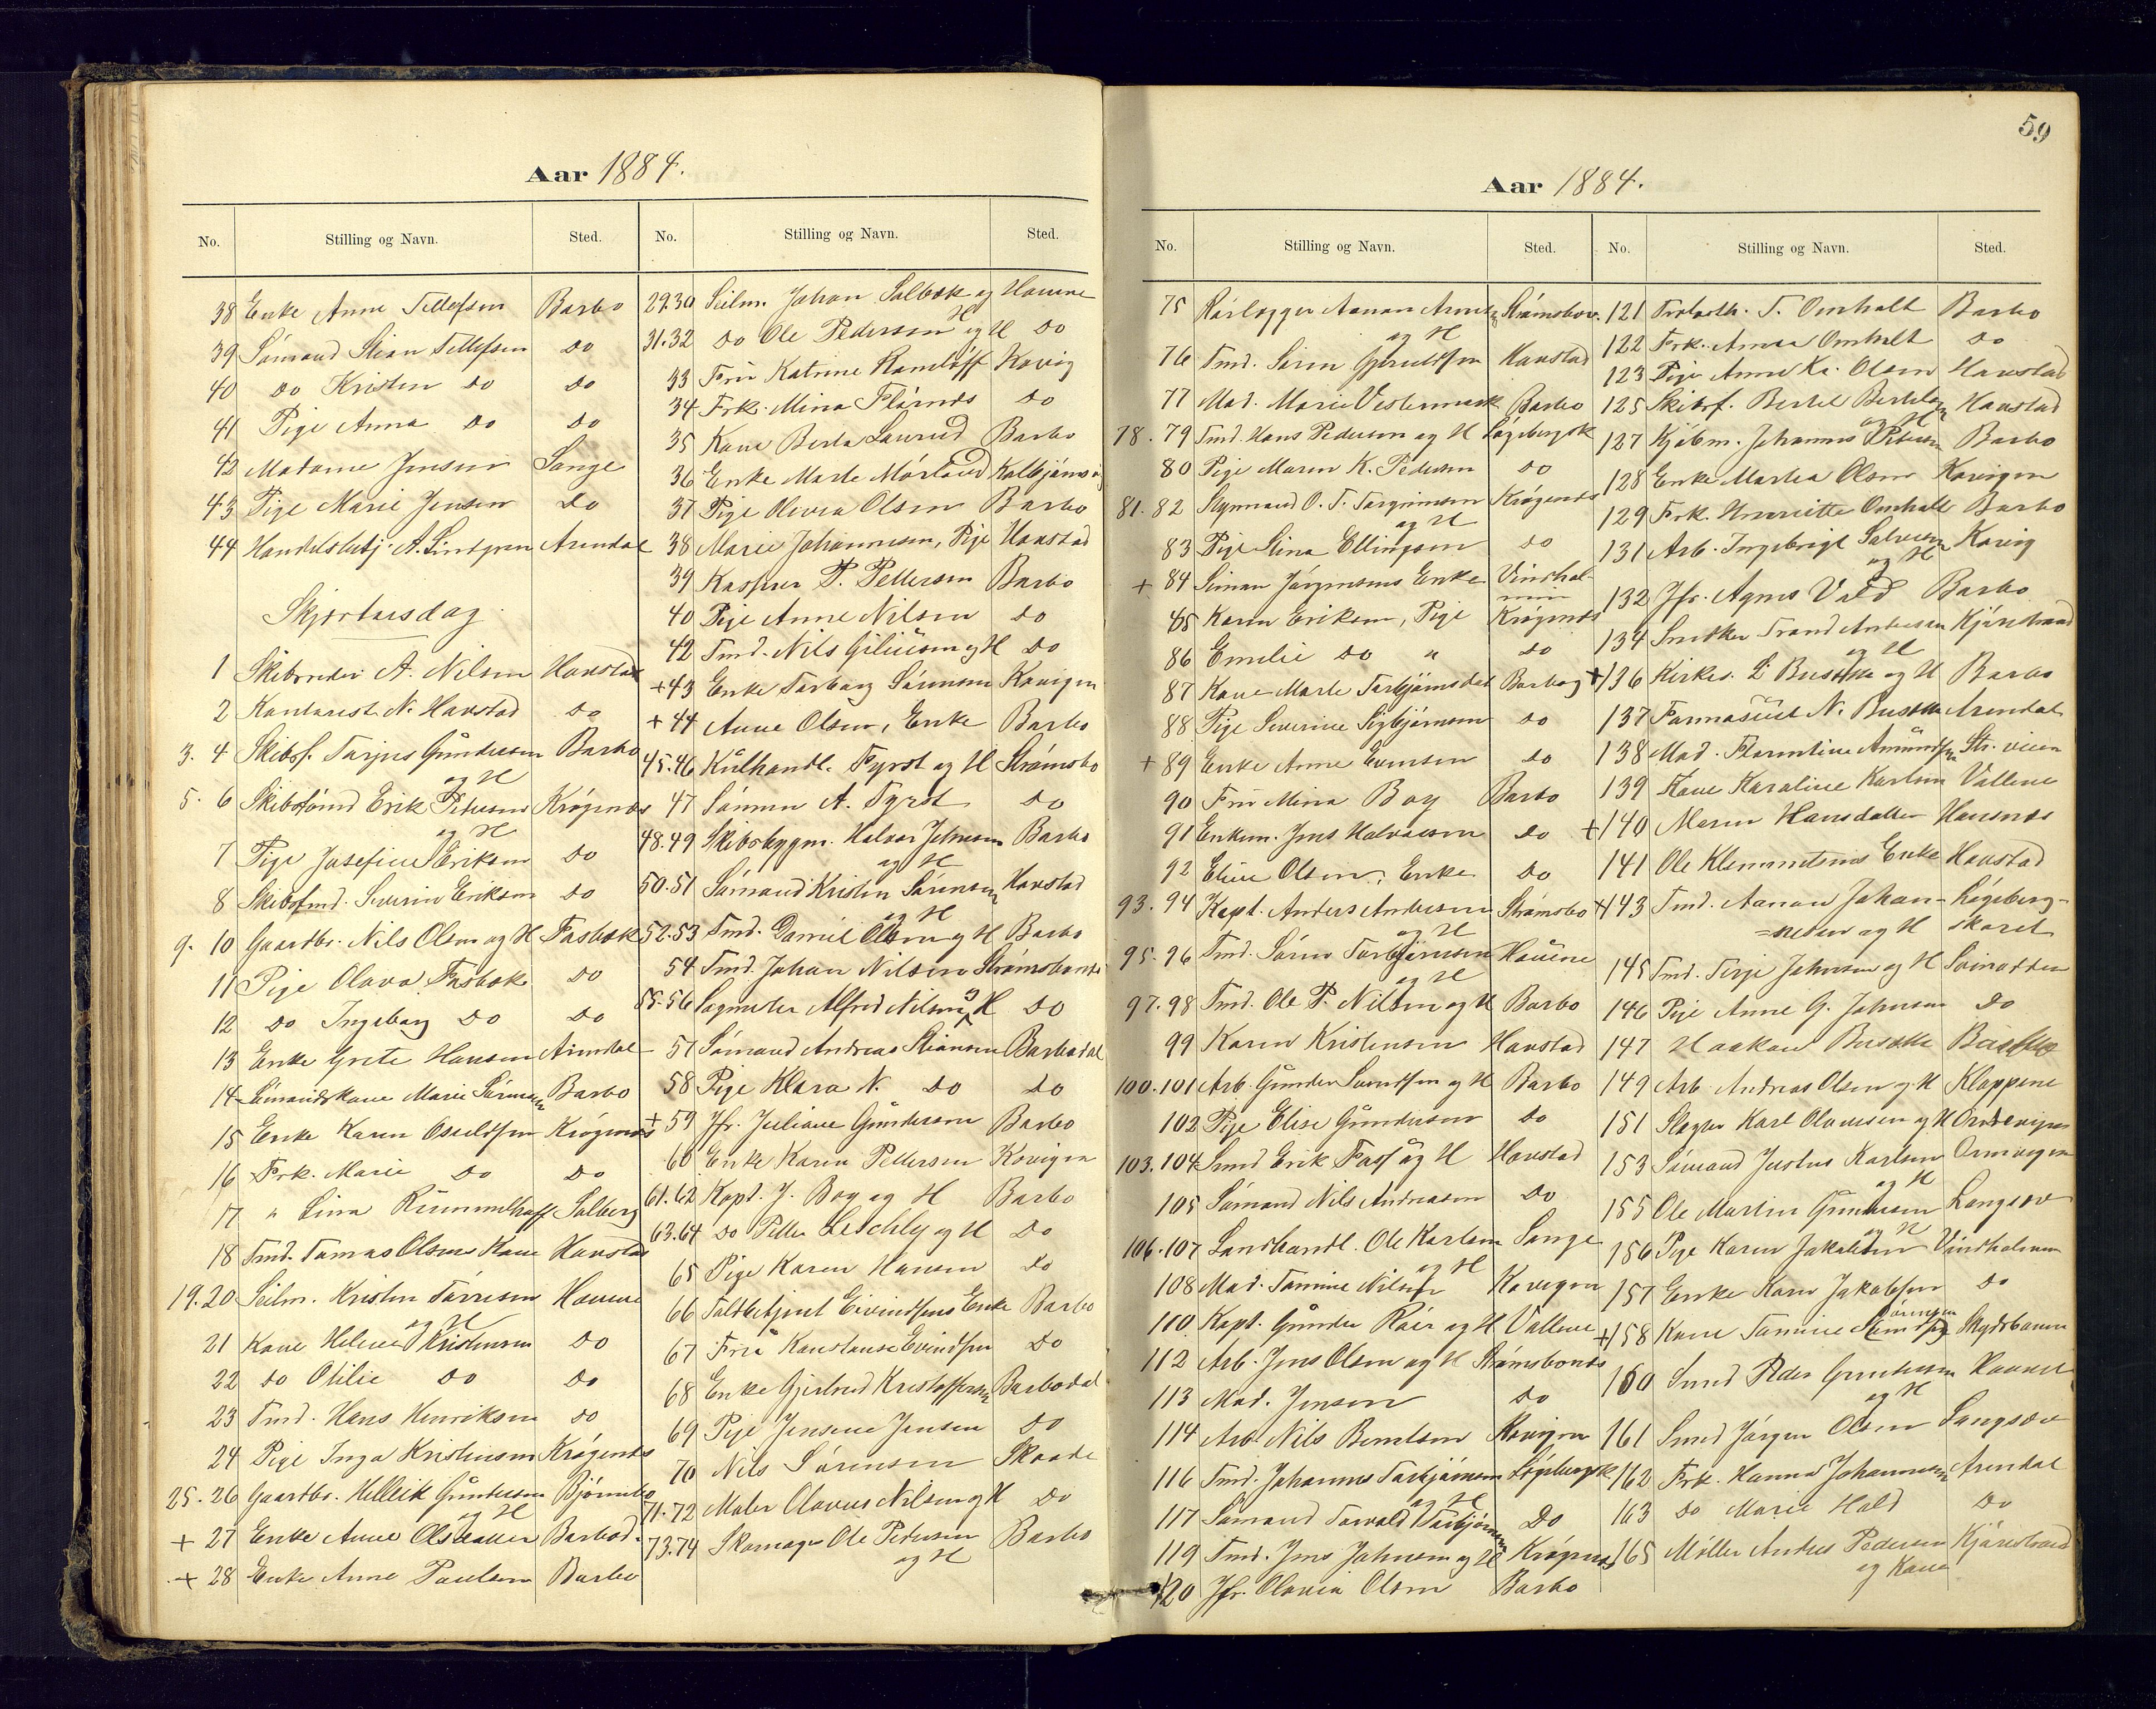 Aar 1884.
No. Stilling og Navn. Sted.
38 Enke Anne Tellefsen Barbo
39 Sømand Stian Tellefsen do
40 do Kristen do do
41 Pige Anna do do
42 Madame Jensen Songe
43 Pige Marie Jensen do
44 Handelsbetj. A. Lindgren Arendal
Skjærtorsdag.
1 Skibsreder A. Nilsen Havstad
2 Kontorist N. Havstad do
3. 4 Skibsf. Terjus Gundersen Barbo
og H
5. 6 Skibstømd Erik Petersen Krøgenæs
og H
7 Pige Josefine Eriksen do
8 Skibstmd. Severin Eriksen do
9. 10 Gaardbr. Nils Olsen og H Fasbæk
11 Pige Olava Fasbæk do
12 do Ingeborg do do
13 Enke Grete Hansen Arendal
14 Sømandskone Marie Sørensen Barbo
15 Enke Karen Osuldsen Krøgenæs
16 Frk. Marie do do
17 " Lina Rummelhoff Solberg
18 Tmd. Tomas Olsens Kone Havstad
19.20 Seilm. Kristen Tørresen Havene
og H
21 Kone Helene Kristensen do
22 do Otilie do do
23 Tmd. Hans Henriksen do
24 Pige Inga Kristensen Krøgenæs
25.26 Gaardbr. Hellik Gundersen Bjørnebo
og H
+ 27 Enke Anne Olsdatter Barbod.
+ 28 Enke Anne Paulsen Barbo
No. Stilling og Navn. Sted.
29.30 Seilm. Johan Solbæk og H Havene
31.32 do Ole Pedersen og H do
33 Fru Katrine Ramløff Kovig
34 Frk. Mina Flørnæs do
35 Kone Berta Laurud Barbo
36 Enke Marte Mørland Kolbjørnsv
37 Pige Olevia Olsen Barbo
38 Marie Johannesen, Pige Havstad
39 Kasper P. Pettersen Barbo
40 Pige Anne Nilsen do
42 Tmd. Nils Giliusen og H do
+43 Enke Torborg Sørensen Kovigen
+44 Anne Olsen, Enke Barbo
45.46 Kulhandl. Fyrst og H Strømsbo
47 Sønnen A. Fyrst do
48.49 Skibsbygm. Halvor Johnsen Barbo
og H
50.51 Sømand Kristen Sørensen Havstad
og H
52.53 Tmd. Daniel Olsen og H Barbo
54 Tmd. Johan Nilsen Strømsbonæs
55.56 Logmeter Alfred Nilsen og H do
57 Sømand Andreas Stiansen Barbodal
58 Pige Klara N. do do
+59 Jfr. Juliane Gundersen Barbo
60 Enke Karen Pettersen Kovigen
61.62 Kapt. J. Boy og H Barbo
63.64 do Petter Leschly og H do
65 Pige Karen Hansen do
66 Toldbetjent Eivindsens Enke Barbo
67 Fru Konstanse Eivindsen do
68 Enke Gjertrud Kristoffersen Barbodal
69 Pige Jensine Jensen do
70 Nils Sørensen Skaade
71.72 Maler Olavus Nilsen og H do
73.74 Skomager Ole Pedersen Barbo
og H
59
Aar 1884.
No. Stilling og Navn. Sted.
75 Aanon Strømsbon.
og H
76 Tmd. Søren Gjeruldsen Havstad
77 Mad. Marie Vestermark Barbo
78. 79 Tmd. Hans Pedersen og H Løgebergsk
80 Pige Maren K. Pedersen do
81. 82 Styrmand O. T. Torgrimsen Krøgenæs
og H
83 Pige Stina Ellingsen do
+ 84 Simon Jørgensens Enke Vindholmen
85 Karen Eriksen, Pige Krøgenæs
86 Emelie do " do
87 Kone Marte Torbjørnsdat Barbo
88 Pige Severine Sigbjørnsen do
+ 89 Enke Anne Evensen do
90 Fru Mina Boy Barbo
91 Enkem. Jens Halvorsen do
92 Eline Olsen, Enke do
93. 94 Kapt. Anders Andersen Strømsbo
og H
95. 96 Tmd. Søren Torbjørnsen Havene
og H
97.98 Tmd. Ole P. Nilsen og H Barbo
99 Karen Kristensen Havstad
100.101 Arb. Gunder Samdsen og H Barbo
102 Pige Elise Gundersen do
103.104 Smd Erik Foss og H Havstad
105 Sømand Nils Andreasen do
106.107 Landhandl. Ole Karlsen Songe
og H
108 Mad. Tomine Nilsen Kovigen
110 Kapt. Gunder Röer og H Vallene
112 Arb. Jens Olsen og H Strømsbonæs
113 Mad. Jensen do
114 Arb. Nils Berntsen Kovigen
116 Tmd. Johannes Torbjørnsen Løgebergsk
og H
117 Sømand Torvald Torbjørnsen do
119 Tmd. Jens Johnsen og H Krøgenæs
120 Jfr. Olavia Olsen Barbo
No. Stilling og Navn. Sted.
121 T. Omholt Barbo
122 Frk. Anna Omholt do
123 Pige Anne Ki. Olsen Havstad
125 Skibsf. Bertel Bertelsen Havstad
og H
127 Kjøbm. Johannes Petersen Barbo
128 Enke Martea Olsen Kovigen
129 Frk. Henriette Omholt Barbo
131 Arb. Ingebrigt Salvesen Kovig
og H
132 Jfr. Agnes Vold Barbo
134 Snedker Trond Andersen Kjørestrand
og H
+136 Kirkes. L. Busekke og H Barbo
137 Farmasüet N. Busekke Arendal
138 Mad. Florentine Amundsen Str. veien
139 Kone Karoline Karlsen Vallene
+140 Maren Hansdatter Havsnæs
141 Ole Klemmetsens Enke Havstad
+143 Tmd. Aanon Johan- Løgeberg-
=nesen og H skaret
145 Tmd. Terje Johnsen og H Svinodden
146 Pige Anne G. Johnsen do
147 Haakon Busekke Barbo
149 Arb. Andreas Olsen og H Kloppene
151 Slagter Karl Olavesen og H
153 Sømand Justus Karlsen Ormvigen
og H
155 Ole Martin Gundersen Langsæv
og H
156 Pige Karen Jakobsen Vindholmen
157 Enke Karen Jakobsen do
+158 Kone Tomine Sørensen Skydsbanen
160 Smd Peder Gundersen
og H
161 Smd Jørgen Olsen Langsæv
162 Frk. Hanna Johannesen Arendal
163 do Marie Hold do
165 Møller Andres Pedersen Kjørestrand
og Kone